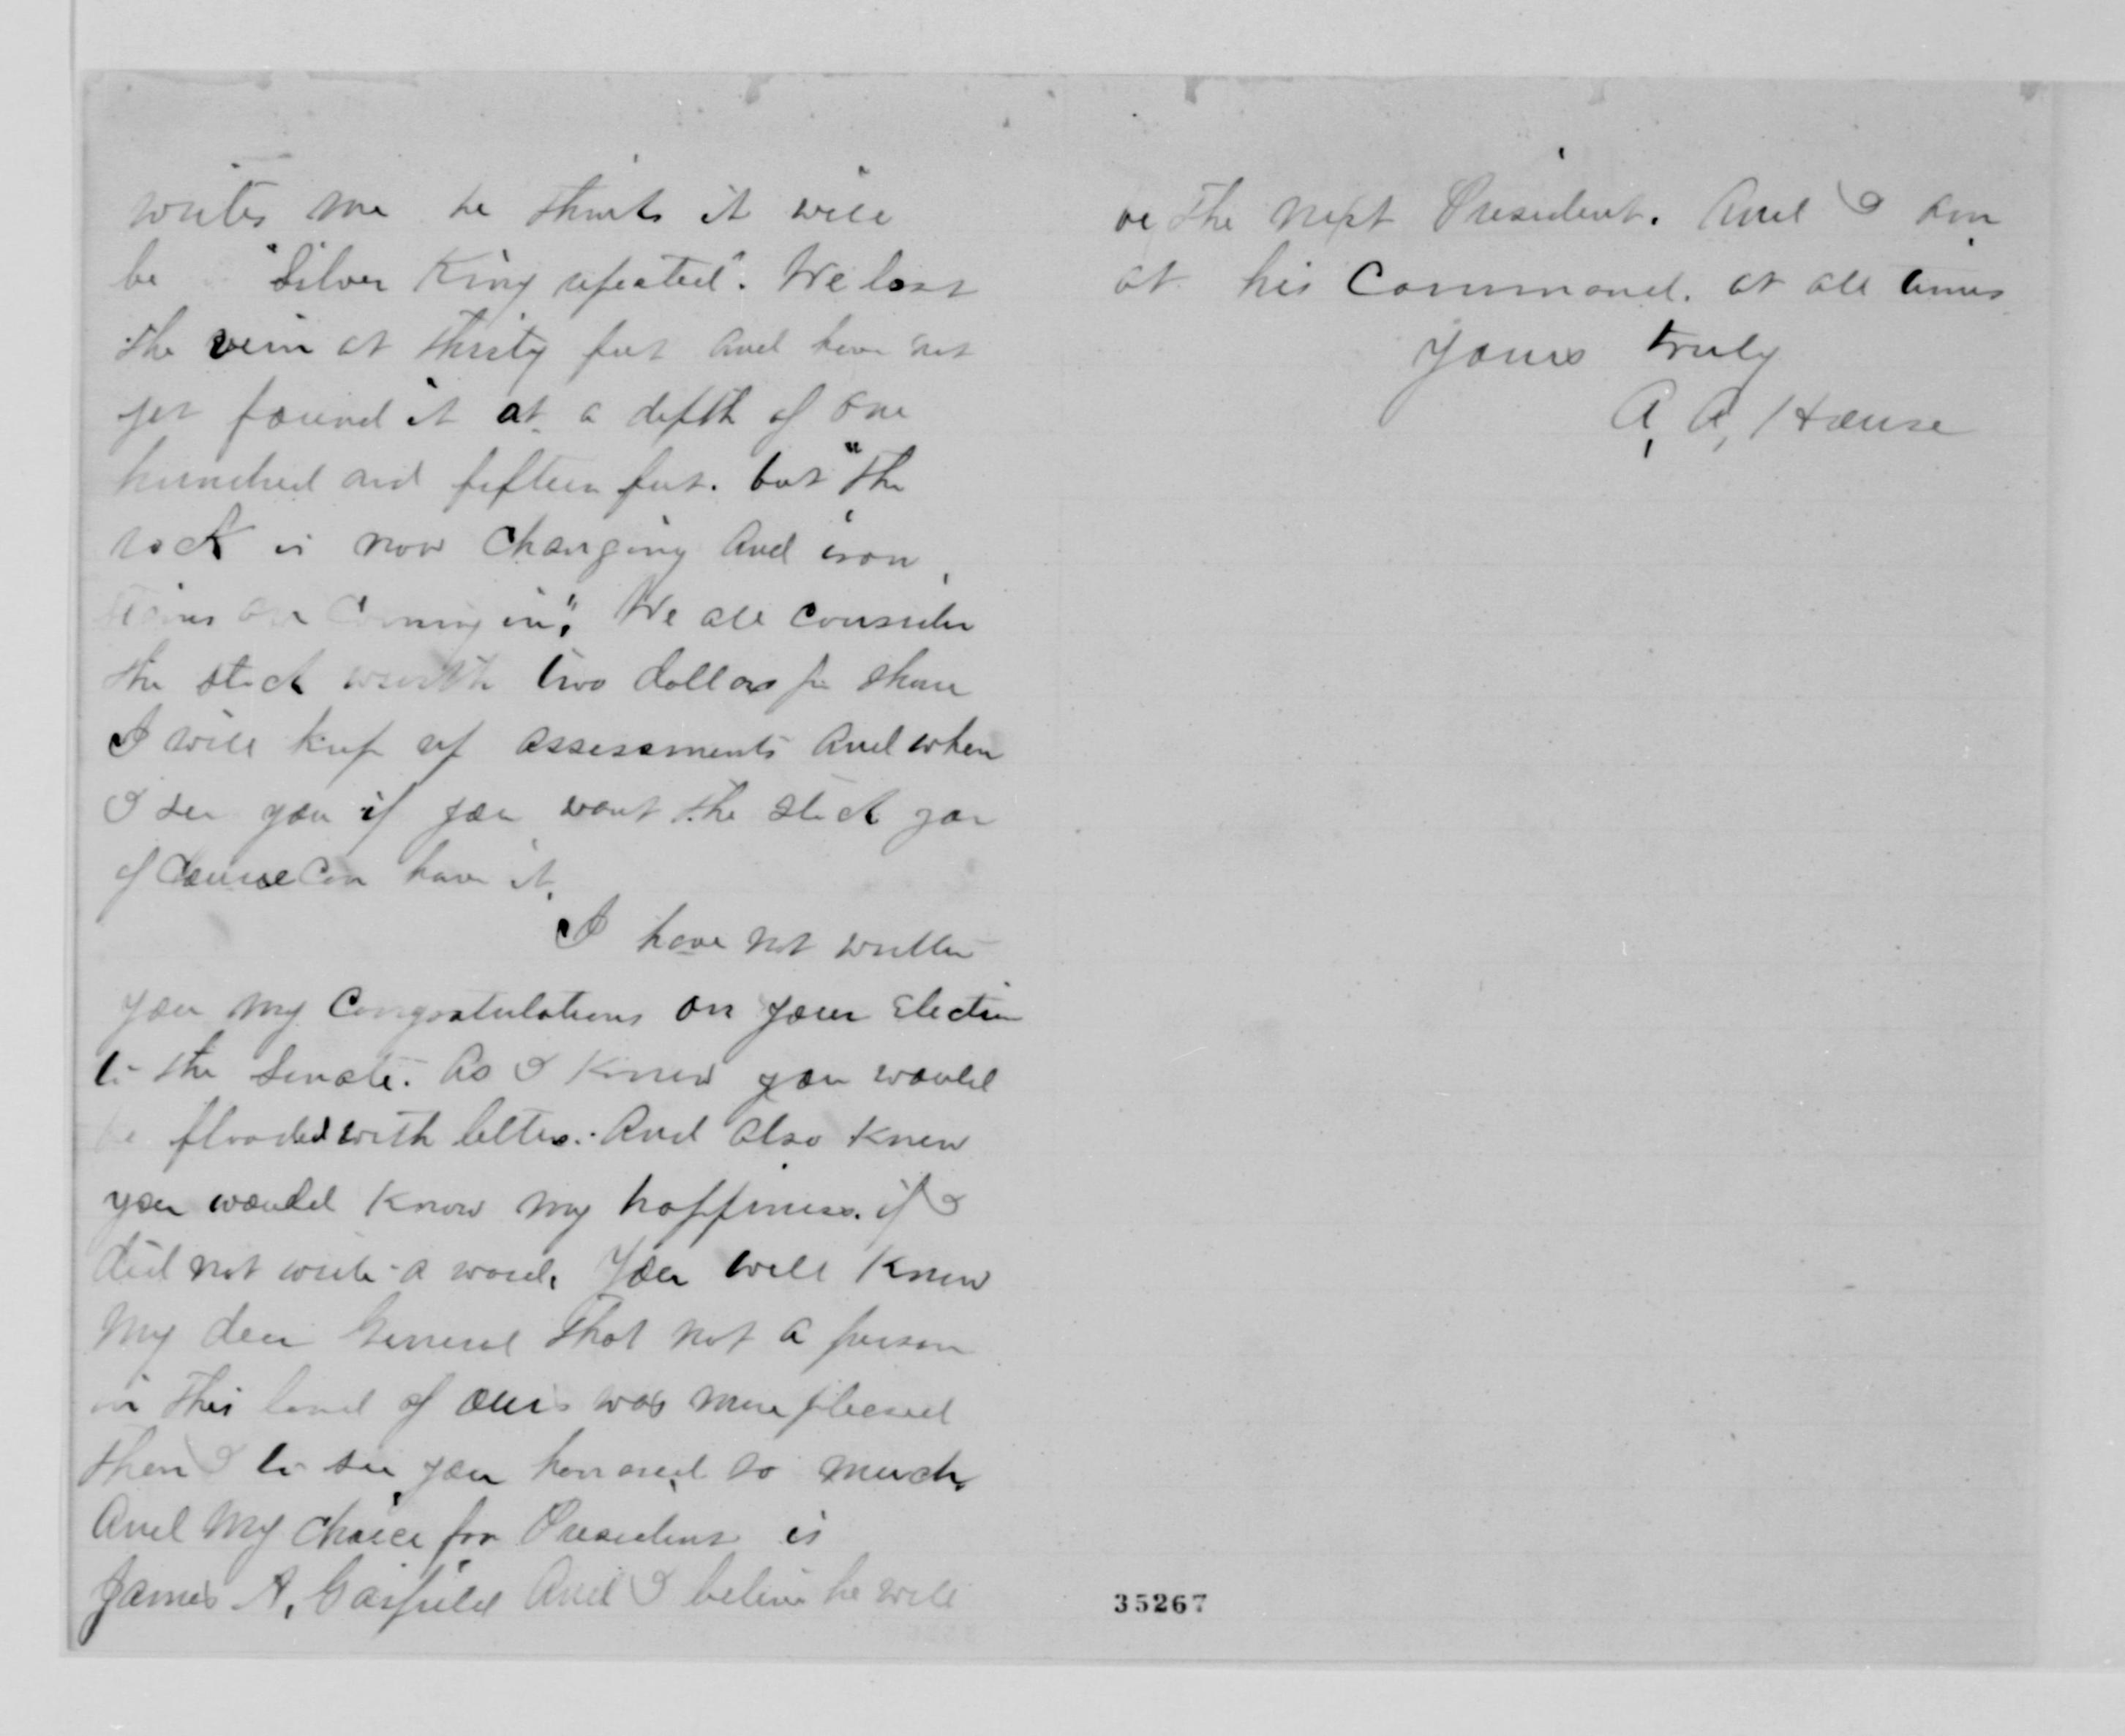 writes me he thinks it will
be "Silver King repeated". We lost
the vein at thirty feet and have not
yet found it at a depth of one
hundred and fifteen feet. but "the
rock is now changing And iron
stains are coming in". We all consider
the stock worth two dollars per share
I will keep up assessments And when
I see you if you want the stock you
of course can have it.
I have not written
you my Congratulations on your Election
to the Senate. As I knew you would
be flooded with letters. And also knew
you would know my happiness. if I
did not write a word. You well know
My dear General that not a person
in this land of ours was more pleased
than I to see you honored so much,
And my choice for President is
James A. Garfield And I believe he will
be the next President. And I am
at his Command. at all times
Yours truly
A. A. House
35267